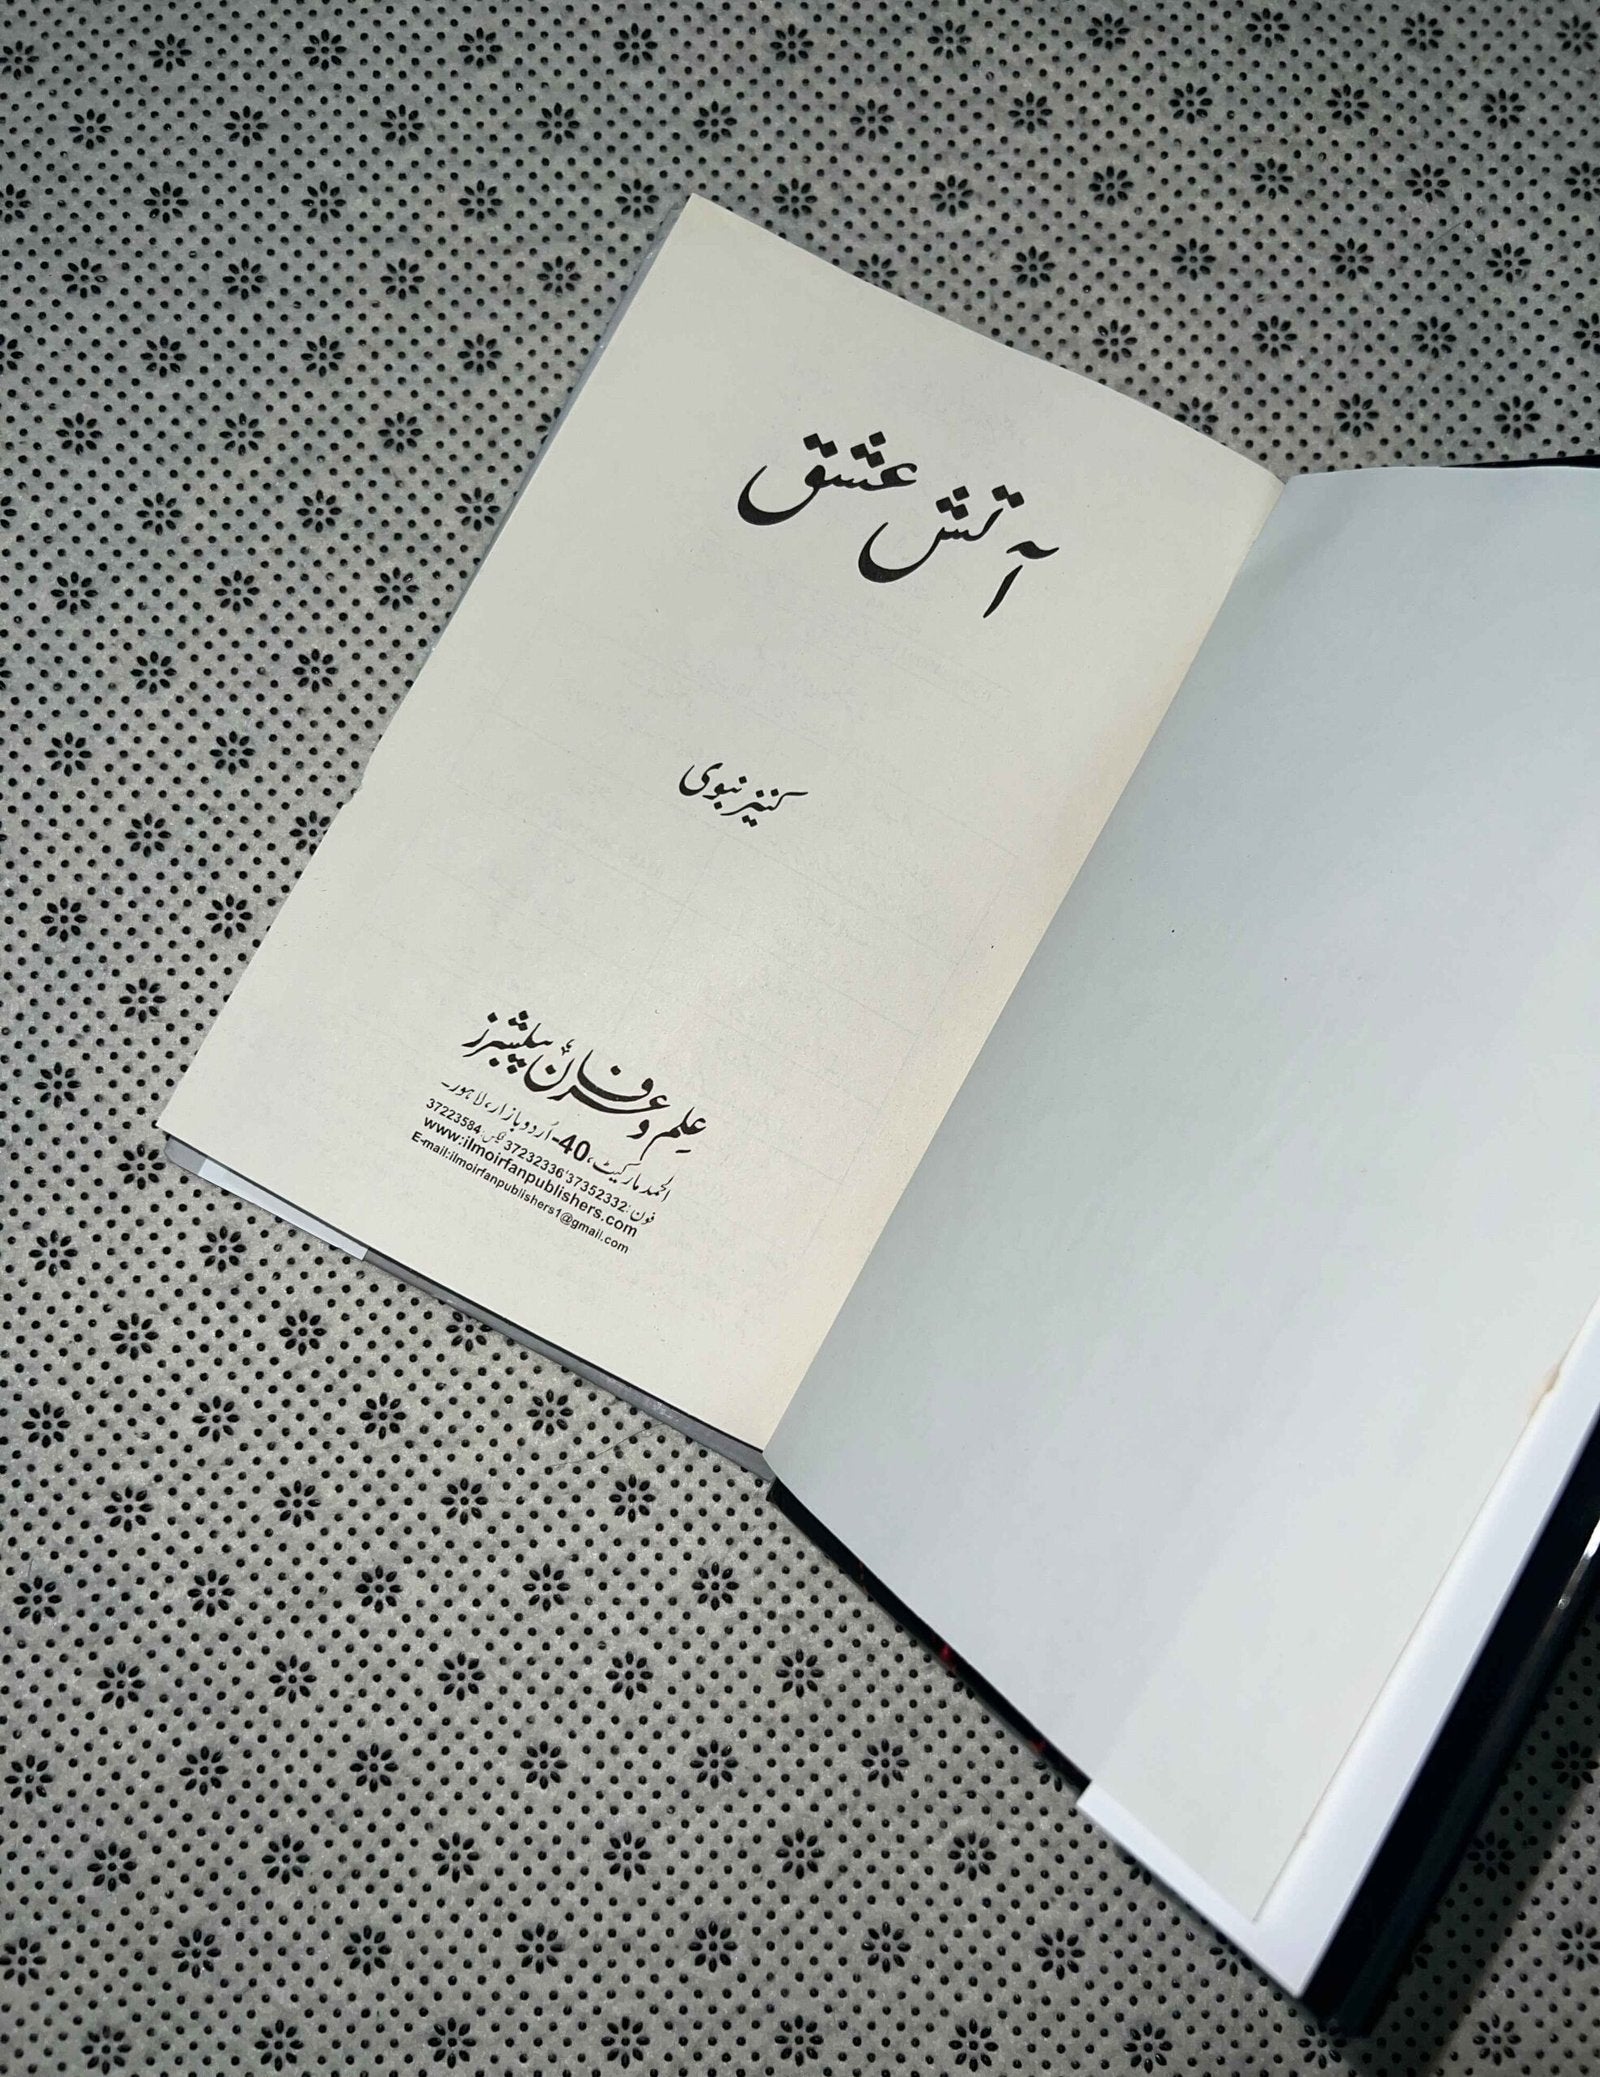 آتش عشق
کنیز نبوی
علم و عرفان پبلشرز
الحمد مارکیٹ، 40-اُردو بازار، لاہور۔
فون: 37352332'37232336 فیکس: 37223584
www.ilmoirfanpublishers.com
E-mail:ilmoirfanpublishers1@gmail.com